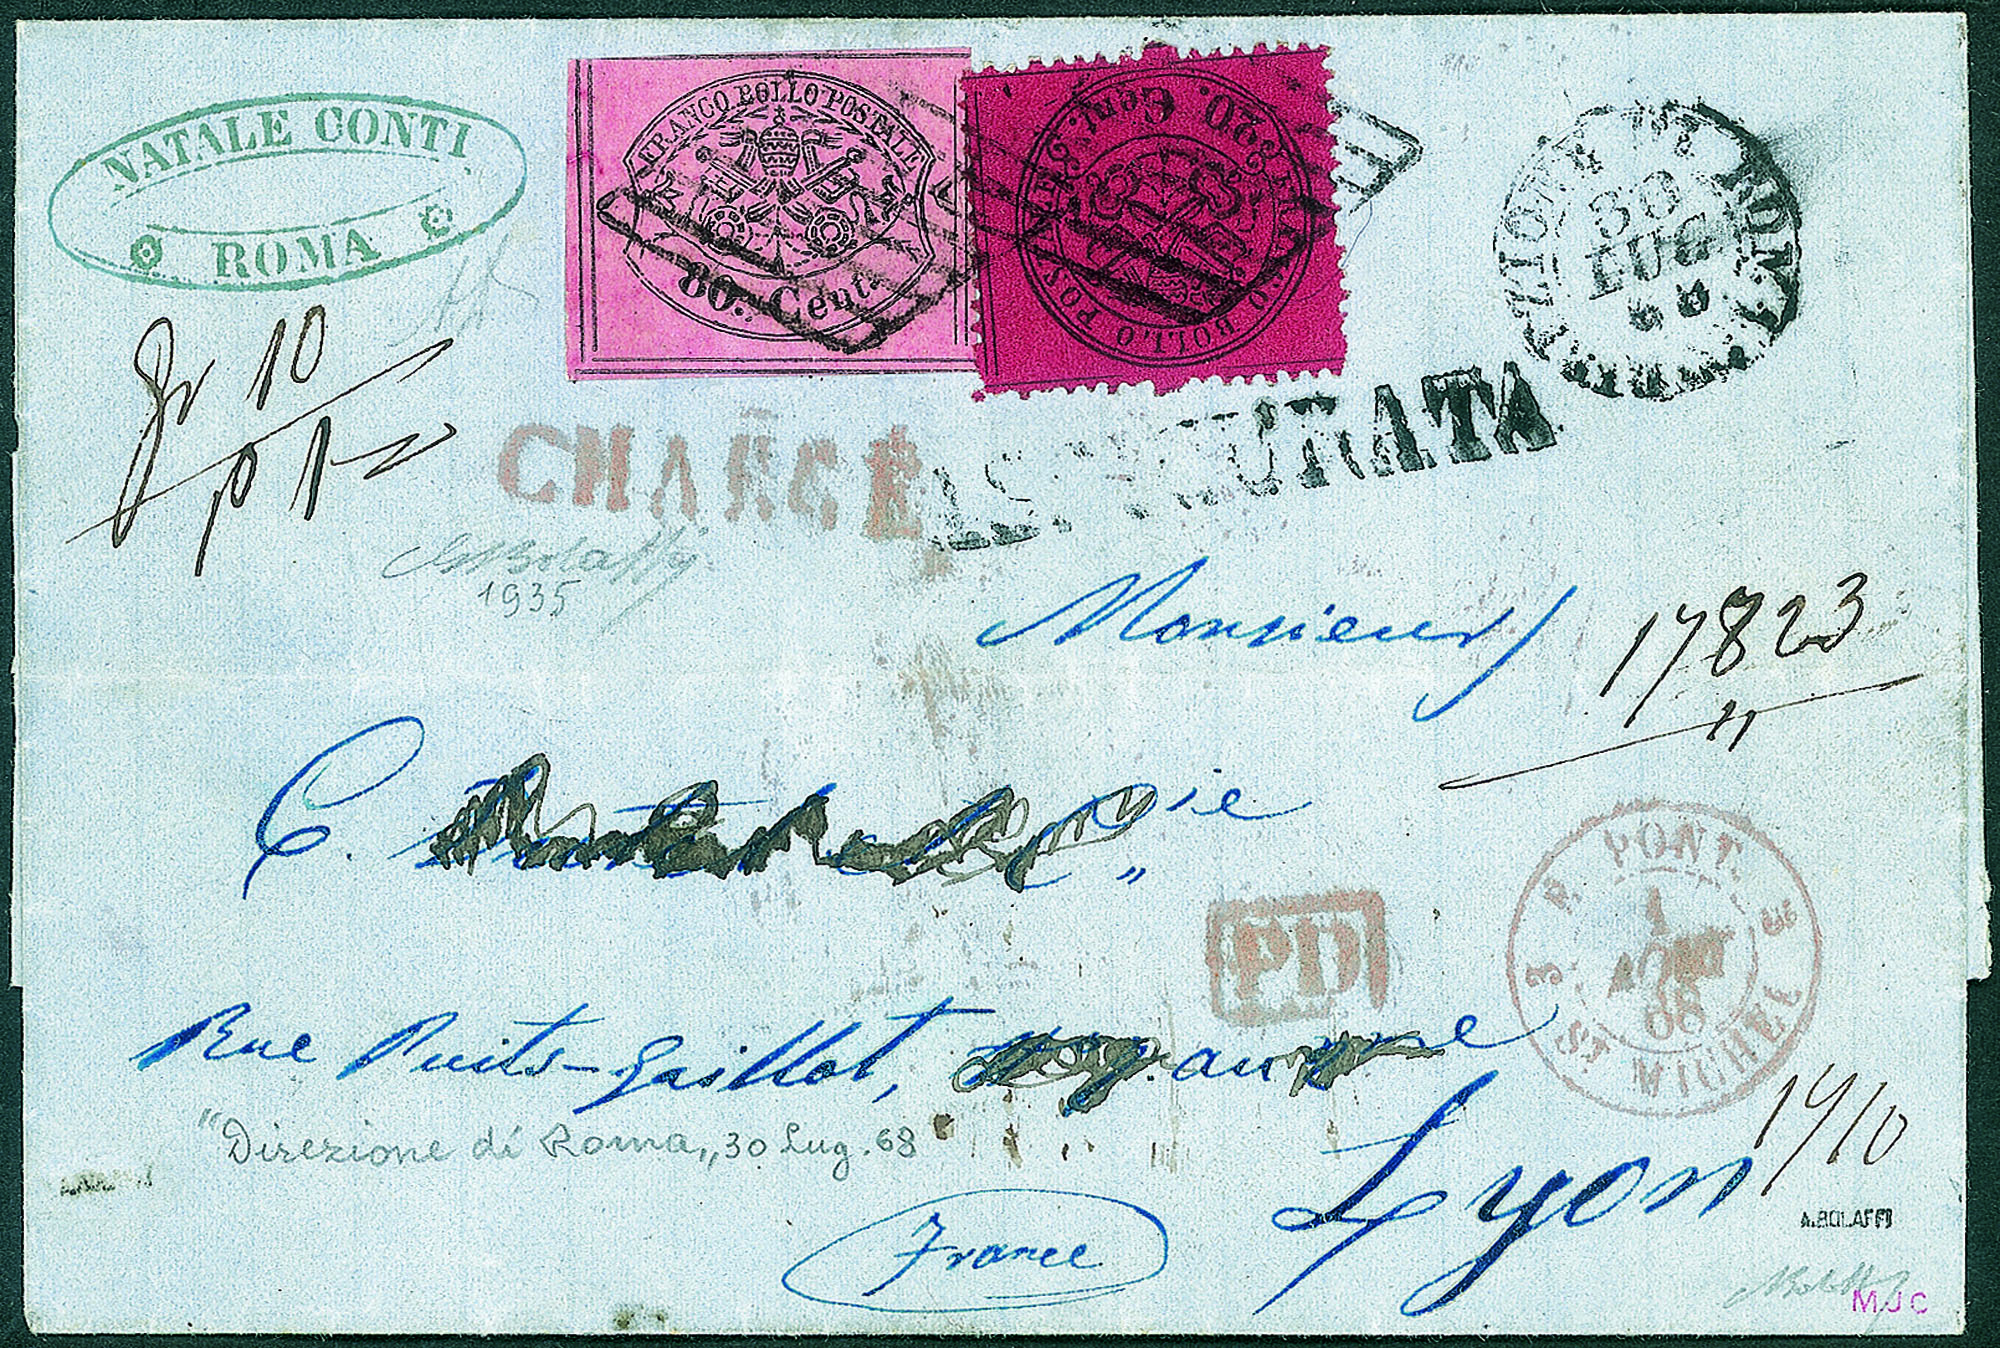 NATALE CONTI
ROMA
FRANCO BOLLO POSTALE
80. Cent.
FRANCO BOLLO POSTALE
20. Cent.
DIREZIONE DI ROMA
30
LUG
68
10
p 1
CHARGÉ
ASSICURATA
1935
Monsieur
17823
C. Cie
"
PD
3 PONT. ST MICHEL 3
1
AOUT
68
Rue Puits-Gaillot,
"Direzione di Roma„ 30 Lug. 68
Lyon
(France)
A. BOLAFFI
MJC